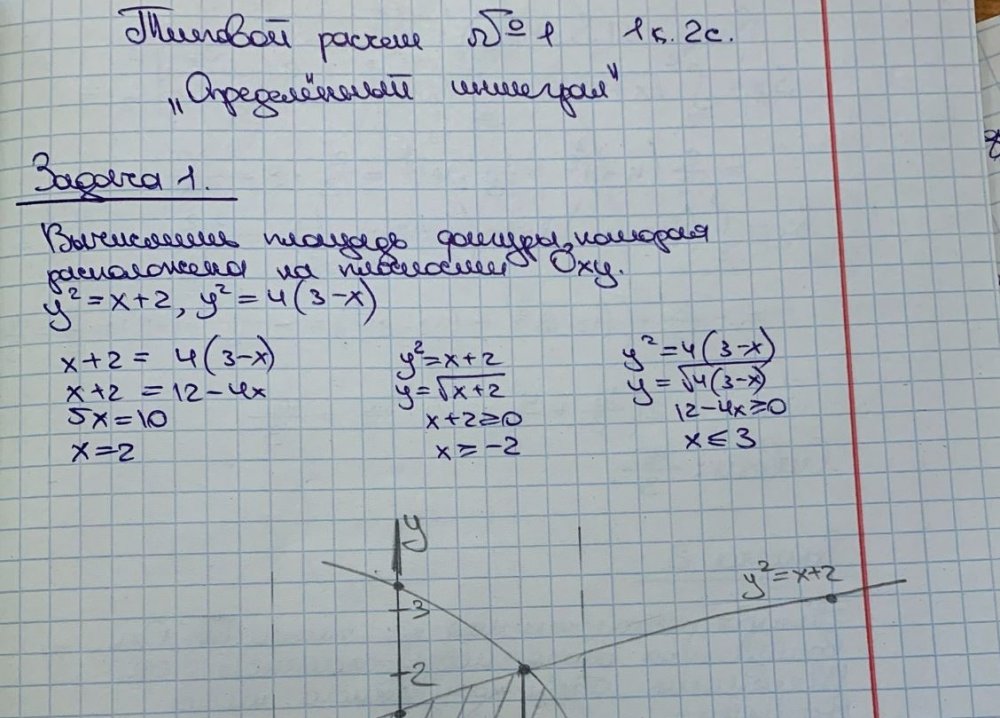 Типовой расчет № 1 1к. 2с.
„Определённый интеграл"
Задача 1.
Вычислить площадь фигуры, которая
расположена на плоскости Oxy.
y²=x+2, y²=4(3-x)
x+2 = 4(3-x) y²=x+2 y²=4(3-x)
x+2 = 12-4x y=√x+2 y=√4(3-x)
5x=10 x+2≥0 12-4x≥0
x=2 x≥-2 x≤3
y
y²=x+2
3
2